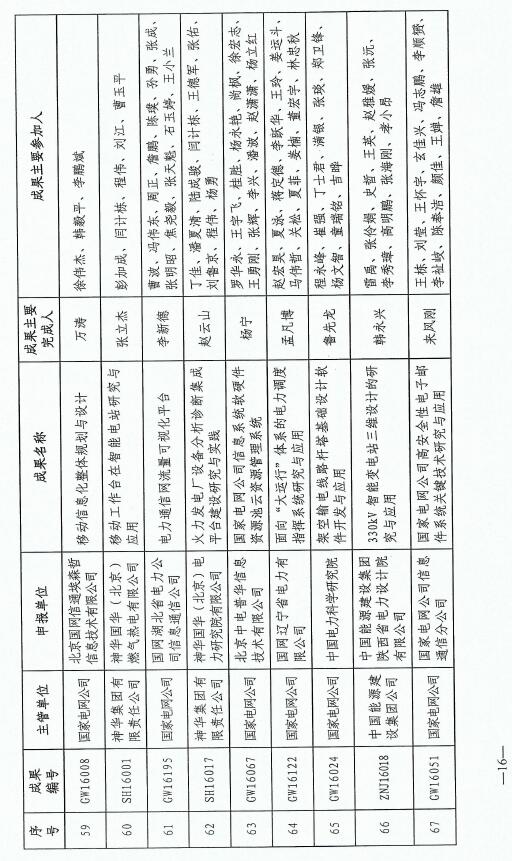 序号 成果编号 主管单位 申报单位 成果名称 成果主要完成人 成果主要参加人
59 GW16008 国家电网公司 北京国网信通埃森哲信息技术有限公司 移动信息化整体规划与设计 万涛 徐伟杰、韩毅平、李鹏斌
60 SH16001 神华集团有限责任公司 神华国华(北京)燃气热电有限公司 移动工作台在智能电站研究与应用 张立杰 彭加成、闫计栋、程伟、刘江、曹玉平
61 GW16195 国家电网公司 国网湖北省电力公司信息通信公司 电力通信网流量可视化平台 李新德 曹波、冯伟东、周正、詹鹏、陈璞、孙勇、张成、张明昭、焦尧毅、张天魁、石玉婷、王小兰
62 SH16017 神华集团有限责任公司 神华国华(北京)电力研究院有限公司 火力发电厂设备分析诊断集成平台建设研究与实践 赵云山 丁佳、潘夏清、陆成骏、闫计栋、王德军、张佑、刘鲁京、程伟、杨勇
63 GW16067 国家电网公司 北京中电普华信息技术有限公司 国家电网公司信息系统软硬件资源池云资源管理系统 杨宁 罗华永、王宇飞、桂胜、杨永艳、尚枫、徐宏志、王勇刚、张辉、李兴、潘波、赵潇潇、杨立红
64 GW16122 国家电网公司 国网辽宁省电力有限公司 面向“大运行”体系的电力调度指挥系统研究与应用 孟凡博 赵宏昊、夏泳、蒋定德、李跃华、王玲、姜运斗、马伟哲、关松、夏菲、姜楠、董宏宇、林忠秋
65 GW16024 国家电网公司 中国电力科学研究院 架空输电线路杆塔基础设计软件开发与应用 鲁先龙 程永峰、崔强、丁士君、满银、张琰、郑卫锋、杨文智、童瑞铭、吉晔
66 ZNJ16018 中国能源建设集团公司 中国能源建设集团陕西省电力设计院有限公司 330kV 智能变电站三维设计的研究与应用 韩永兴 雷禹、张伶俐、史哲、王英、赵雅媛、张沅、李秀璋、高明鹏、张海刚、李小昂
67 GW16051 国家电网公司 国家电网公司信息通信分公司 国家电网公司高安全性电子邮件系统关键技术研究与应用 来风刚 王栋、刘莹、王怀宇、玄佳兴、冯志鹏、李顺赟、李祉岐、陈奉洁、颜佳、王婵、詹雄
—16—